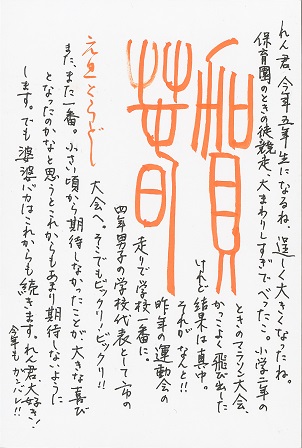 れん君、今年五年生になるね、逞しく大きくなったね。
保育園のときの徒競走、大まわりしすぎでべったこ。小学二年の
ときのマラソン大会、
かっこよく飛び出した
けれど
結果は真中。
それがなんと!!
昨年の運動会の
走りで学校一番に。
四年男子の学校代表として市の
大会へ。そこでもビックリ!ビックリ!!
また、また一番。小さい頃から期待しなかったことが大きな喜び
となったのかなと思うとこれからもあまり期待しないように
します。でも婆婆バカはこれからも続きます。れん君大好き!
今年もガンバレ!!
賀春